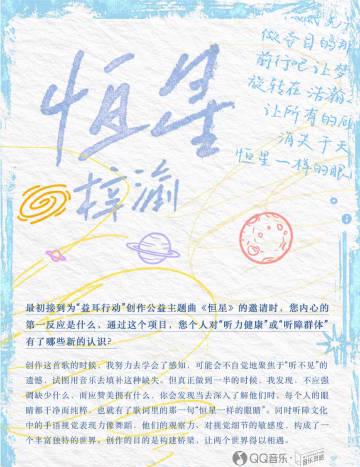 做夺目的那
前行吧让梦
旋转在浩瀚
让所有的
消失于天
恒星一样的眼
恒星
梓渝
最初接到为“益耳行动”创作公益主题曲《恒星》的邀请时，您内心的
第一反应是什么，通过这个项目，您个人对“听力健康”或“听障群体”
有了哪些新的认识？
创作这首歌的时候，我努力去学会了感知，可能会不自觉地聚焦于“听不见”的
遗憾，试图用音乐去填补这种缺失。但真正做到一半的时候，我发现，不应强
调缺少什么，而应赞美拥有什么，你会发现当去深入了解他们时，每个人的眼
睛都干净而纯粹，也就有了歌词里的那一句“恒星一样的眼睛”。同时听障文化
中的手语视觉表现力像舞蹈，他们的观察力、对视觉细节的敏感度，构成了一
个丰富独特的世界，创作的目的是构建桥梁，让两个世界得以相遇。
QQ音乐